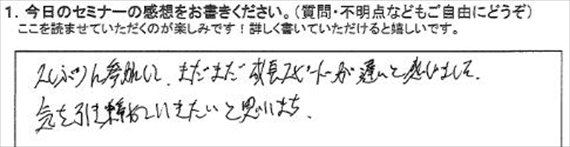 1. 今日のセミナーの感想をお書きください。(質問・不明点などもご自由にどうぞ)
ここを読ませていただくのが楽しみです!詳しく書いていただけると嬉しいです。
久しぶりに参加して、まだまだ成長スピードが遅いと感じました。
気を引き締めていきたいと思います。